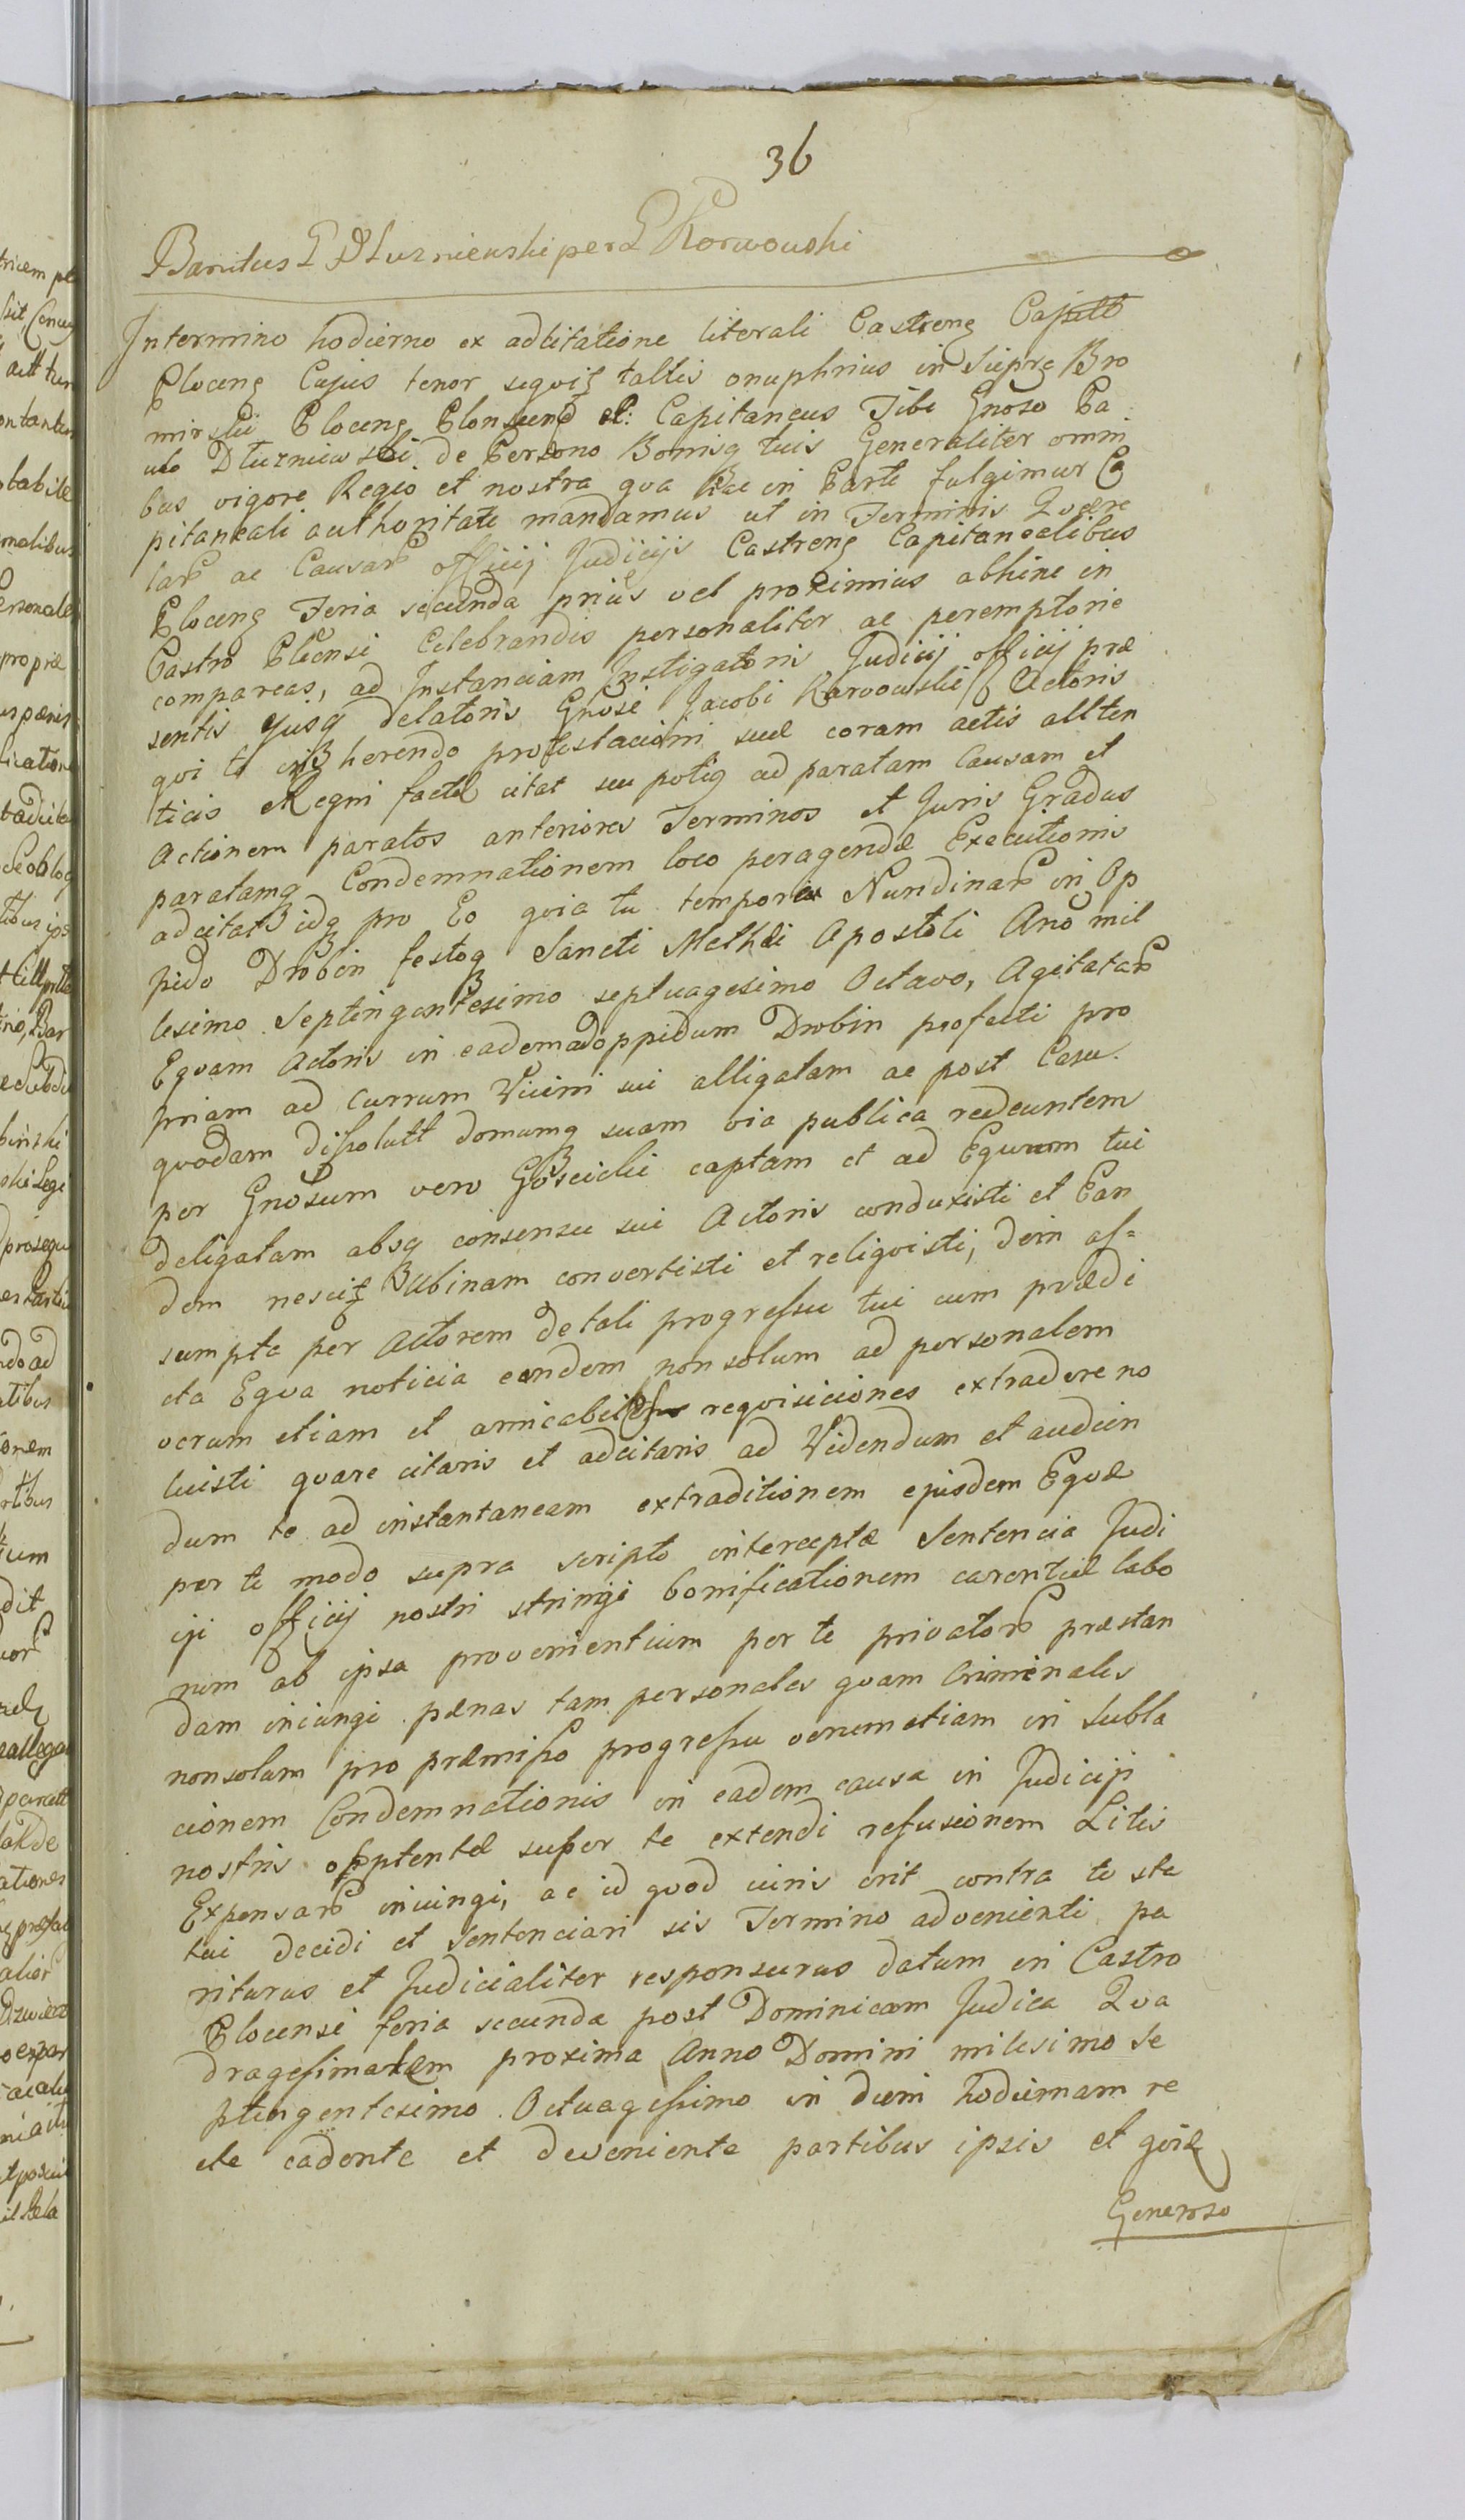 36
Banitus G Dłuzniewski per G Karwowski
In termino hodierno ex adcitatione literali Castreng Capitt
Ploceng Cujus tenor seqvit tallis onuphrius in Sieprg Bro
mirski Ploceng Plonsceng et: Capitaneus Tibi Gnoso Pa
ulo Dłuzniewski de Persona Bonisq tuis Generaliter omni
bus vigore Regio et nostra qva hac in Parte fulgimur Ca
pitaneali authoritate mandamus ut in Terminis Qvære
lar ac Causar officij Judicijs Castreng Capitanealibus
Ploceng Feria secunda prius vel proximius abhinc in
Castro Plcensi Celebrandis personaliter ac peremptorie
compareas, ad Instanciam Instigatoris Judicij officij præ
sentis Ejusq delatoris Gnosi Jacobi Karwowski Actoris
qvi te inhærendo protestacioni suæ coram actis altten
ticis Regni factæ citat seu potiq ad paratam Causam et
Actionem paratos anteriores Terminos et Juris Gradus
paratamq Condemnationem loco peragendæ Executionis
adcitat idq pro Eo qvia tu tempore Nundinar in Op
pido Drobin festoq Sancti Mathæi Apostoli Ano mil
lesimo Septingentesimo septuagesimo Octavo, Agitatar
Eqvam Actoris in eadem ad oppidum Drobin profecti pro
priam ad currum Vicini sui alligatam ac post Casu
qvodam dissolutt domumq suam via publica redeuntem
per Gnosum vero Gościcki captam et ad Eqvum tui
deligatam absq consensu sui Actoris conduxisti et Ean
dem nescit ubinam convertisti et reliqvisti, dein as=
sumpta per Actorem de tali progressu tui cum prædi
cta Eqva noticia eandem non solum ad personalem
verum etiam et amicabiles reqvisiciones extradere no
luisti qvare citaris et adcitaris ad Videndum et audien
dum te ad instantaneam extraditionem ejusdem Eqvæ
per te modo supra scripto interceptæ Sentencia Judi
cij officij nostri stringi bonificationem carentiæ labo
rum ab ipsa provenientium per te privator præstan
dam iniungi pænas tam personales qvam Criminales
non solum pro præmisso progressu verum etiam in subla
cionem Condemnationis in eadem causa in Judicijs
nostris opptentæ super te extendi refusionem Litis
Expensar iniungi, ac id qvod iuris erit contra te sta
tui decidi et sentenciari sis Termino advenienti pa
riturus et Judicialiter responsurus datum in Castro
Plocensi feria secunda post Dominicam Judica Qva
dragesimalem proxima Anno Domini milesimo Se
ptengentesimo Octuagessimo in diem hodiernam re
cte cadente et deveniente partibus ipsis et
Generoso